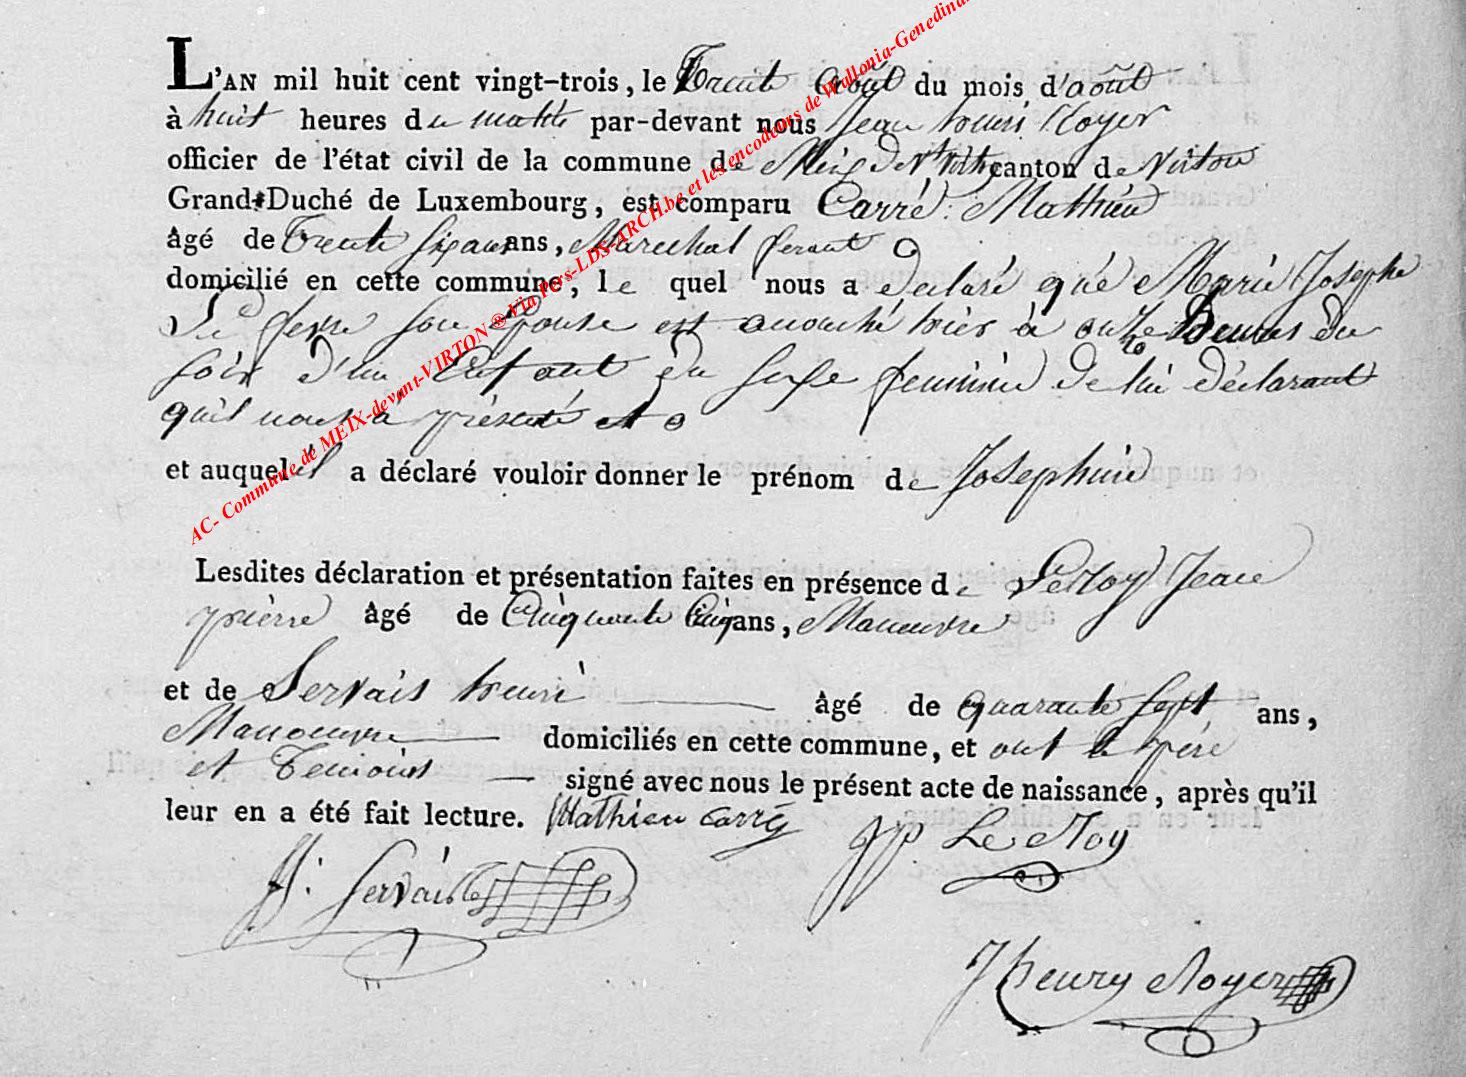 L'AN mil huit cent vingt-trois, le Trente Août du mois d'août
à huit heures du matin par-devant nous Jean henri Royer
officier de l'état civil de la commune de Meix dvt Virton canton de Virton
Grand-Duché de Luxembourg, est comparu Carré Mathieu
âgé de Trente six ans ans, Marechal ferant
domicilié en cette commune, le quel nous a declaré que Marie Josephe
son Epouse est acouché hier à onze heures du
soir d'un Enfant du sexe feminin de lui déclarant
qu'il nous a présenté et
et auquel il a déclaré vouloir donner le prénom de Josephine
Lesdites déclaration et présentation faites en présence de LeRoy Jean
pierre âgé de Cinquante Cinq ans, Manouvre
et de Servais henri âgé de quarante sept ans,
Manouvre domiciliés en cette commune, et ont le père
et Temoins signé avec nous le présent acte de naissance, après qu'il
leur en a été fait lecture. Mathieu Carré
JP Le Roy
H. Servais
J henry Royer
AC- Commune de MEIX-devant-VIRTON ® Via Pers-LDS-ARCH.be et les encodeurs de Wallonia-Genedinan